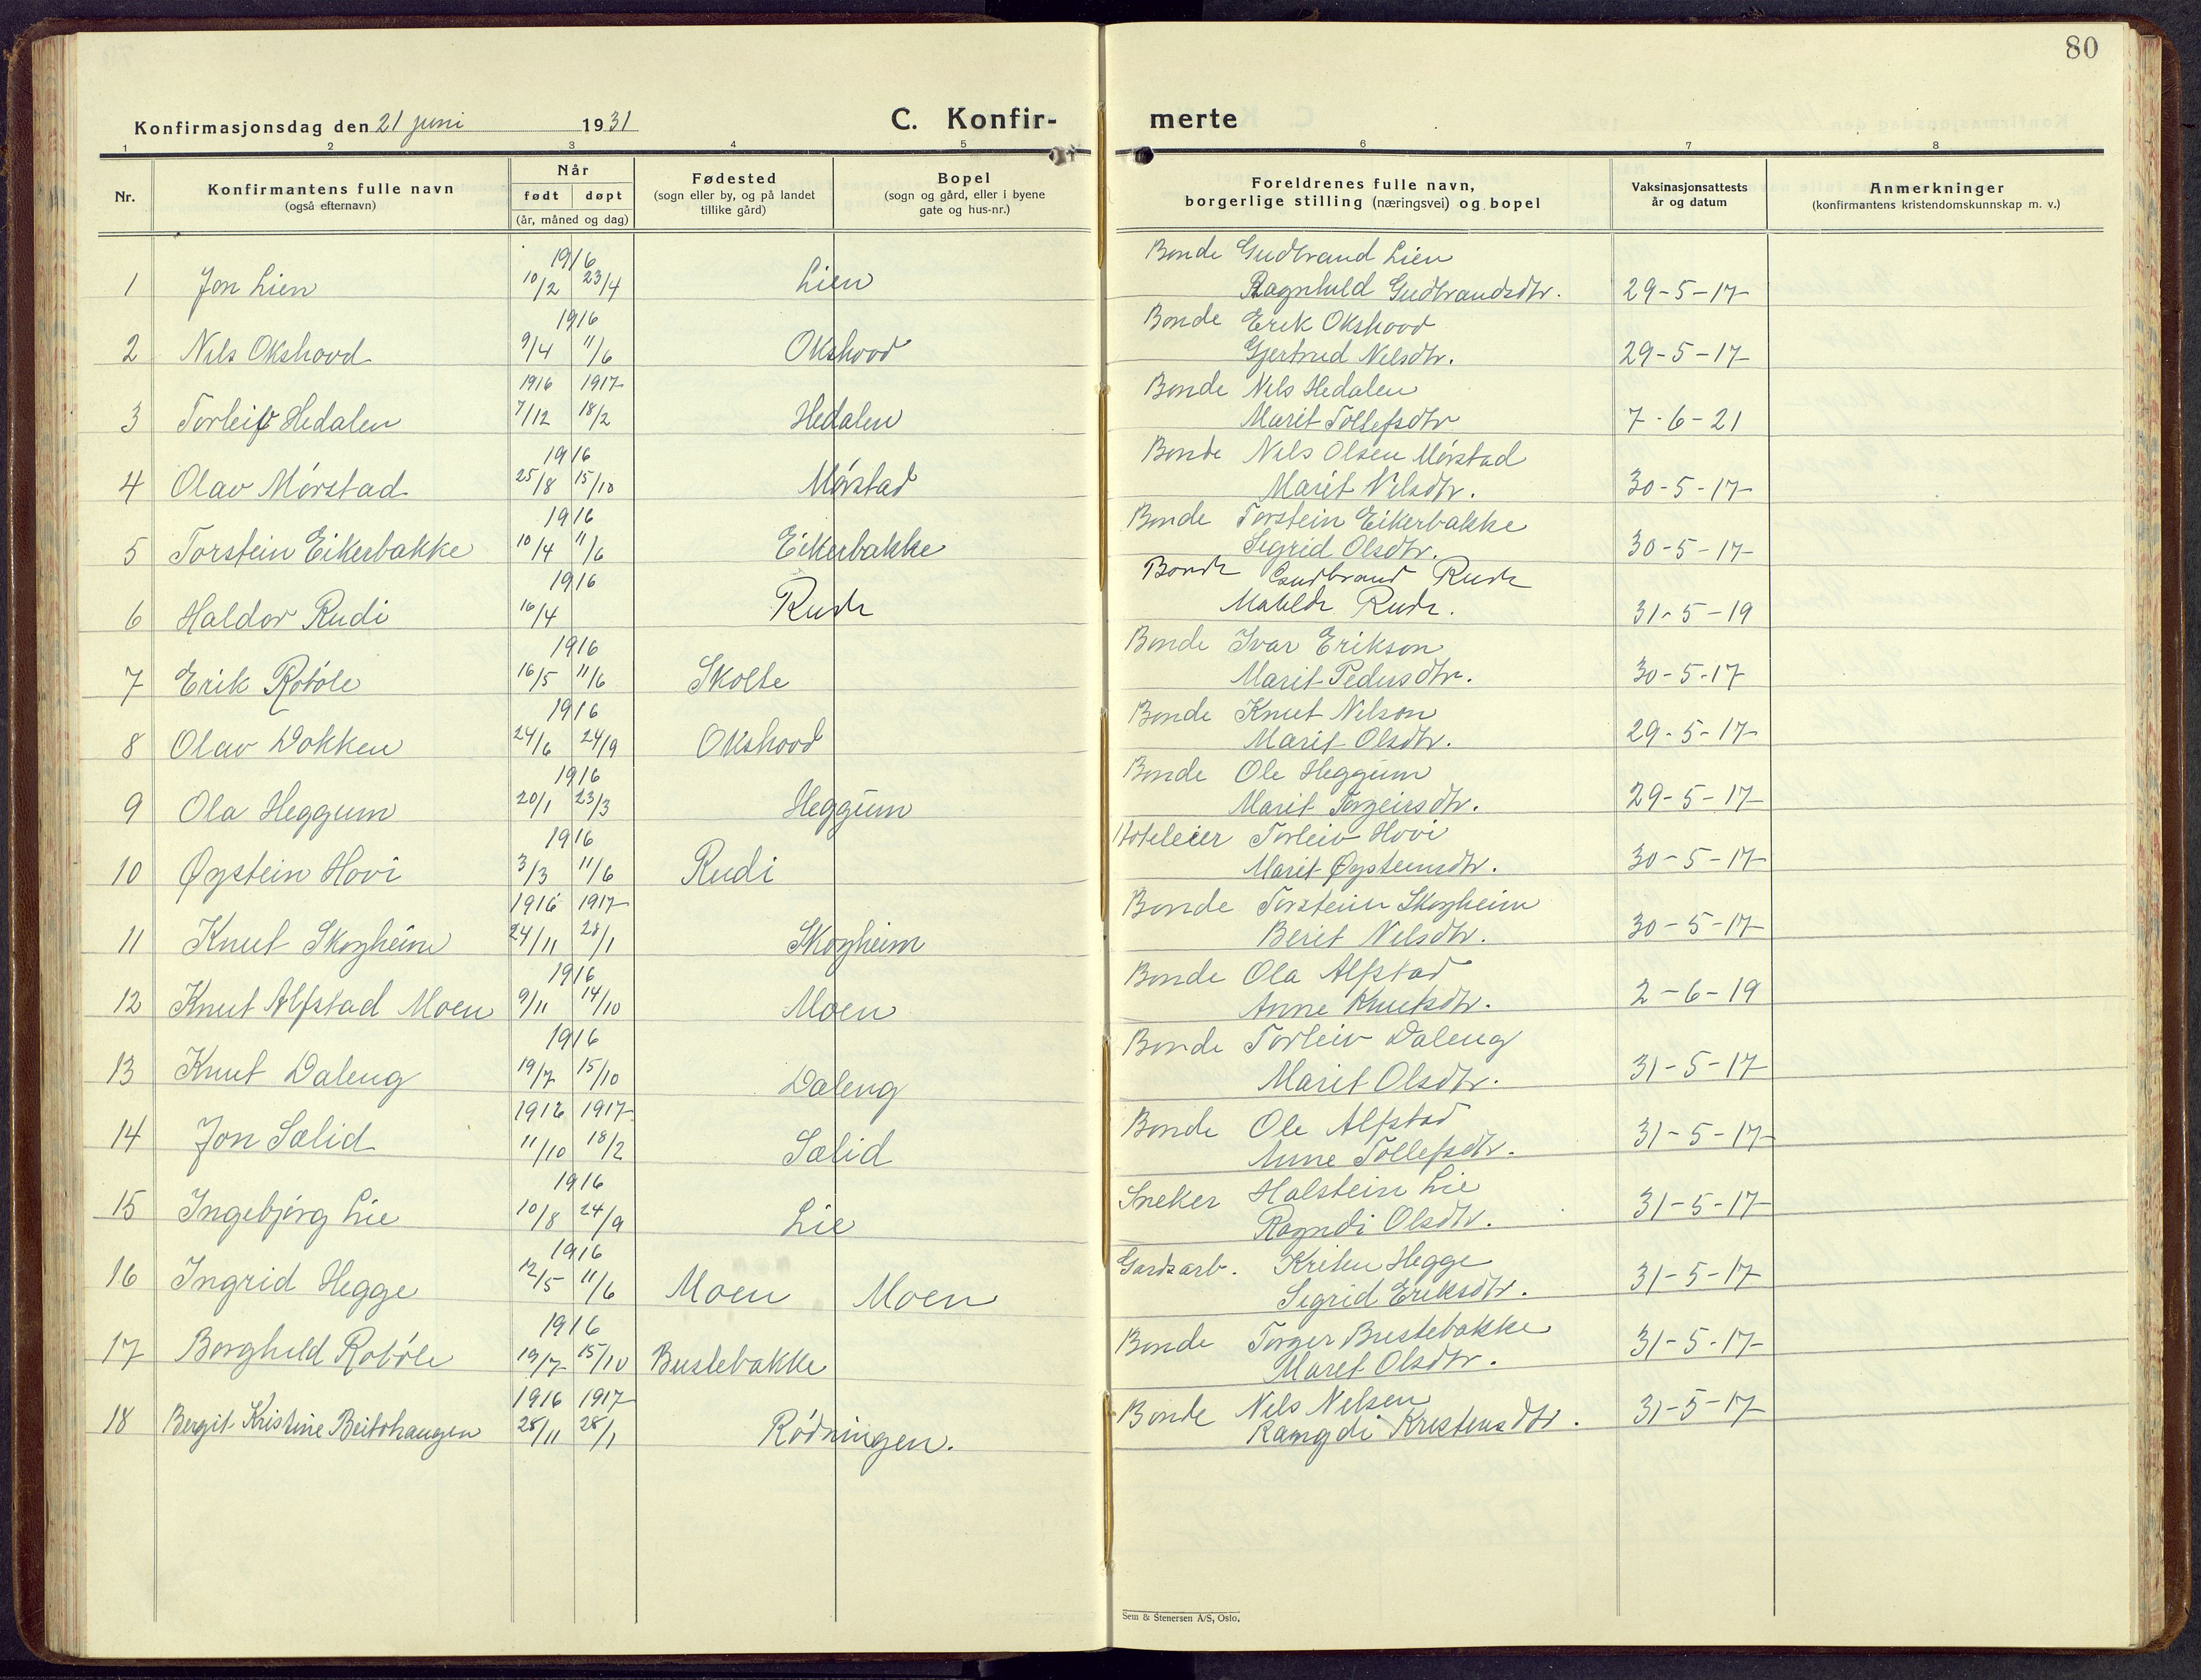 80
Konfirmasjonsdag den 21 juni 1931
C. Konfir-
merte
1 2 3 4 5 6 7 8
Nr.
Konfirmantens fulle navn
(også efternavn)
Når
født døpt
(år, måned og dag)
Fødested
(sogn eller by, og på landet
tillike gård)
Bopel
(sogn og gård, eller i byene
gate og hus-nr.)
Foreldrenes fulle navn,
borgerlige stilling (næringsvei) og bopel
Vaksinasjonsattests
år og datum
Anmerkninger
(konfirmantens kristendomskunnskap m. v.)
1916 Bonde Gudbrand Lien
1 Jon Lien 10/2 23/4 Lien Ragnhild Gudbrandsdtr. 29-5-17
1916 Bonde Erik Okshovd
2 Nils Okshovd 9/4 11/6 Okshovd Gjertrud Nilsdtr. 29-5-17
1916 1917 Bonde Nils Hedalen
3 Torleif Hedalen 7/12 18/2 Hedalen Marit Tollefsdtr 7-6-21
1916 Bonde Nils Olsen Mörstad
4 Olav Mörstad 25/8 15/10 Mörstad Marit Nilsdtr. 30-5-17
1916 Bonde Torstein Eikerbakke
5 Torstein Eikerbakke 10/4 11/6 Eikerbakke Sigrid Olsdtr. 30-5-17
1916 Bonde Gudbrand Rudi
6 Haldor Rudi 16/4 Rudi Matilde Rudi. 31-5-19
1916 Bonde Ivar Erikson
7 Erik Robóle 16/5 11/6 Skolte Marit Pedersdtr. 30-5-17
1916 Bonde Knut Nilson
8 Olav Dokken 24/6 24/9 Okshovd Marit Olsdtr. 29-5-17
1916 Bonde Ole Heggum
9 Ola Heggum 20/1 23/3 Heggum Marit Torgeirsdtr. 29-5-17
1916 Hoteleier Torleiv Hovi
10 Øystein Hovi 3/3 11/6 Rudi Marit Øysteinsdtr. 30-5-17
1916 1917 Bonde Torstein Skogheim
11 Knut Skogheim 24/11 28/1 Skogheim Berit Nilsdtr. 30-5-17
1916 Bonde Ola Alfstad
12 Knut Alfstad Moen 9/11 14/10 Moen Anne Knutsdtr. 2-6-19
1916 Bonde Torleiv Daleng
13 Knut Daleng 19/7 15/10 Daleng Marit Olsdtr. 31-5-17
1916 1917 Bonde Ole Alfstad
14 Jon Sælid 11/10 18/2 Sælid Anne Tollefsdtr. 31-5-17
1916 Sneker Halstein Lie
15 Ingebjörg Lie 10/8 24/9 Lie Ragndi Olsdtr. 31-5-17
1916 Gardsarb. Kristen Hegge
16 Ingrid Hegge 12/5 11/6 Moen Moen Sigrid Eriksdtr. 31-5-17
1916 Bonde Torger Bustebakke
17 Borghild Robóle 19/7 15/10 Bustebakke Marit Olsdtr. 31-5-17
1916 1917 Bonde Nils Nilsen
18 Bergit Kristine Beitohaugen 28/11 28/1 Rödningen. Rangdi Kristensdtr. 31-5-17
Sem & Stenersen A/S, Oslo.